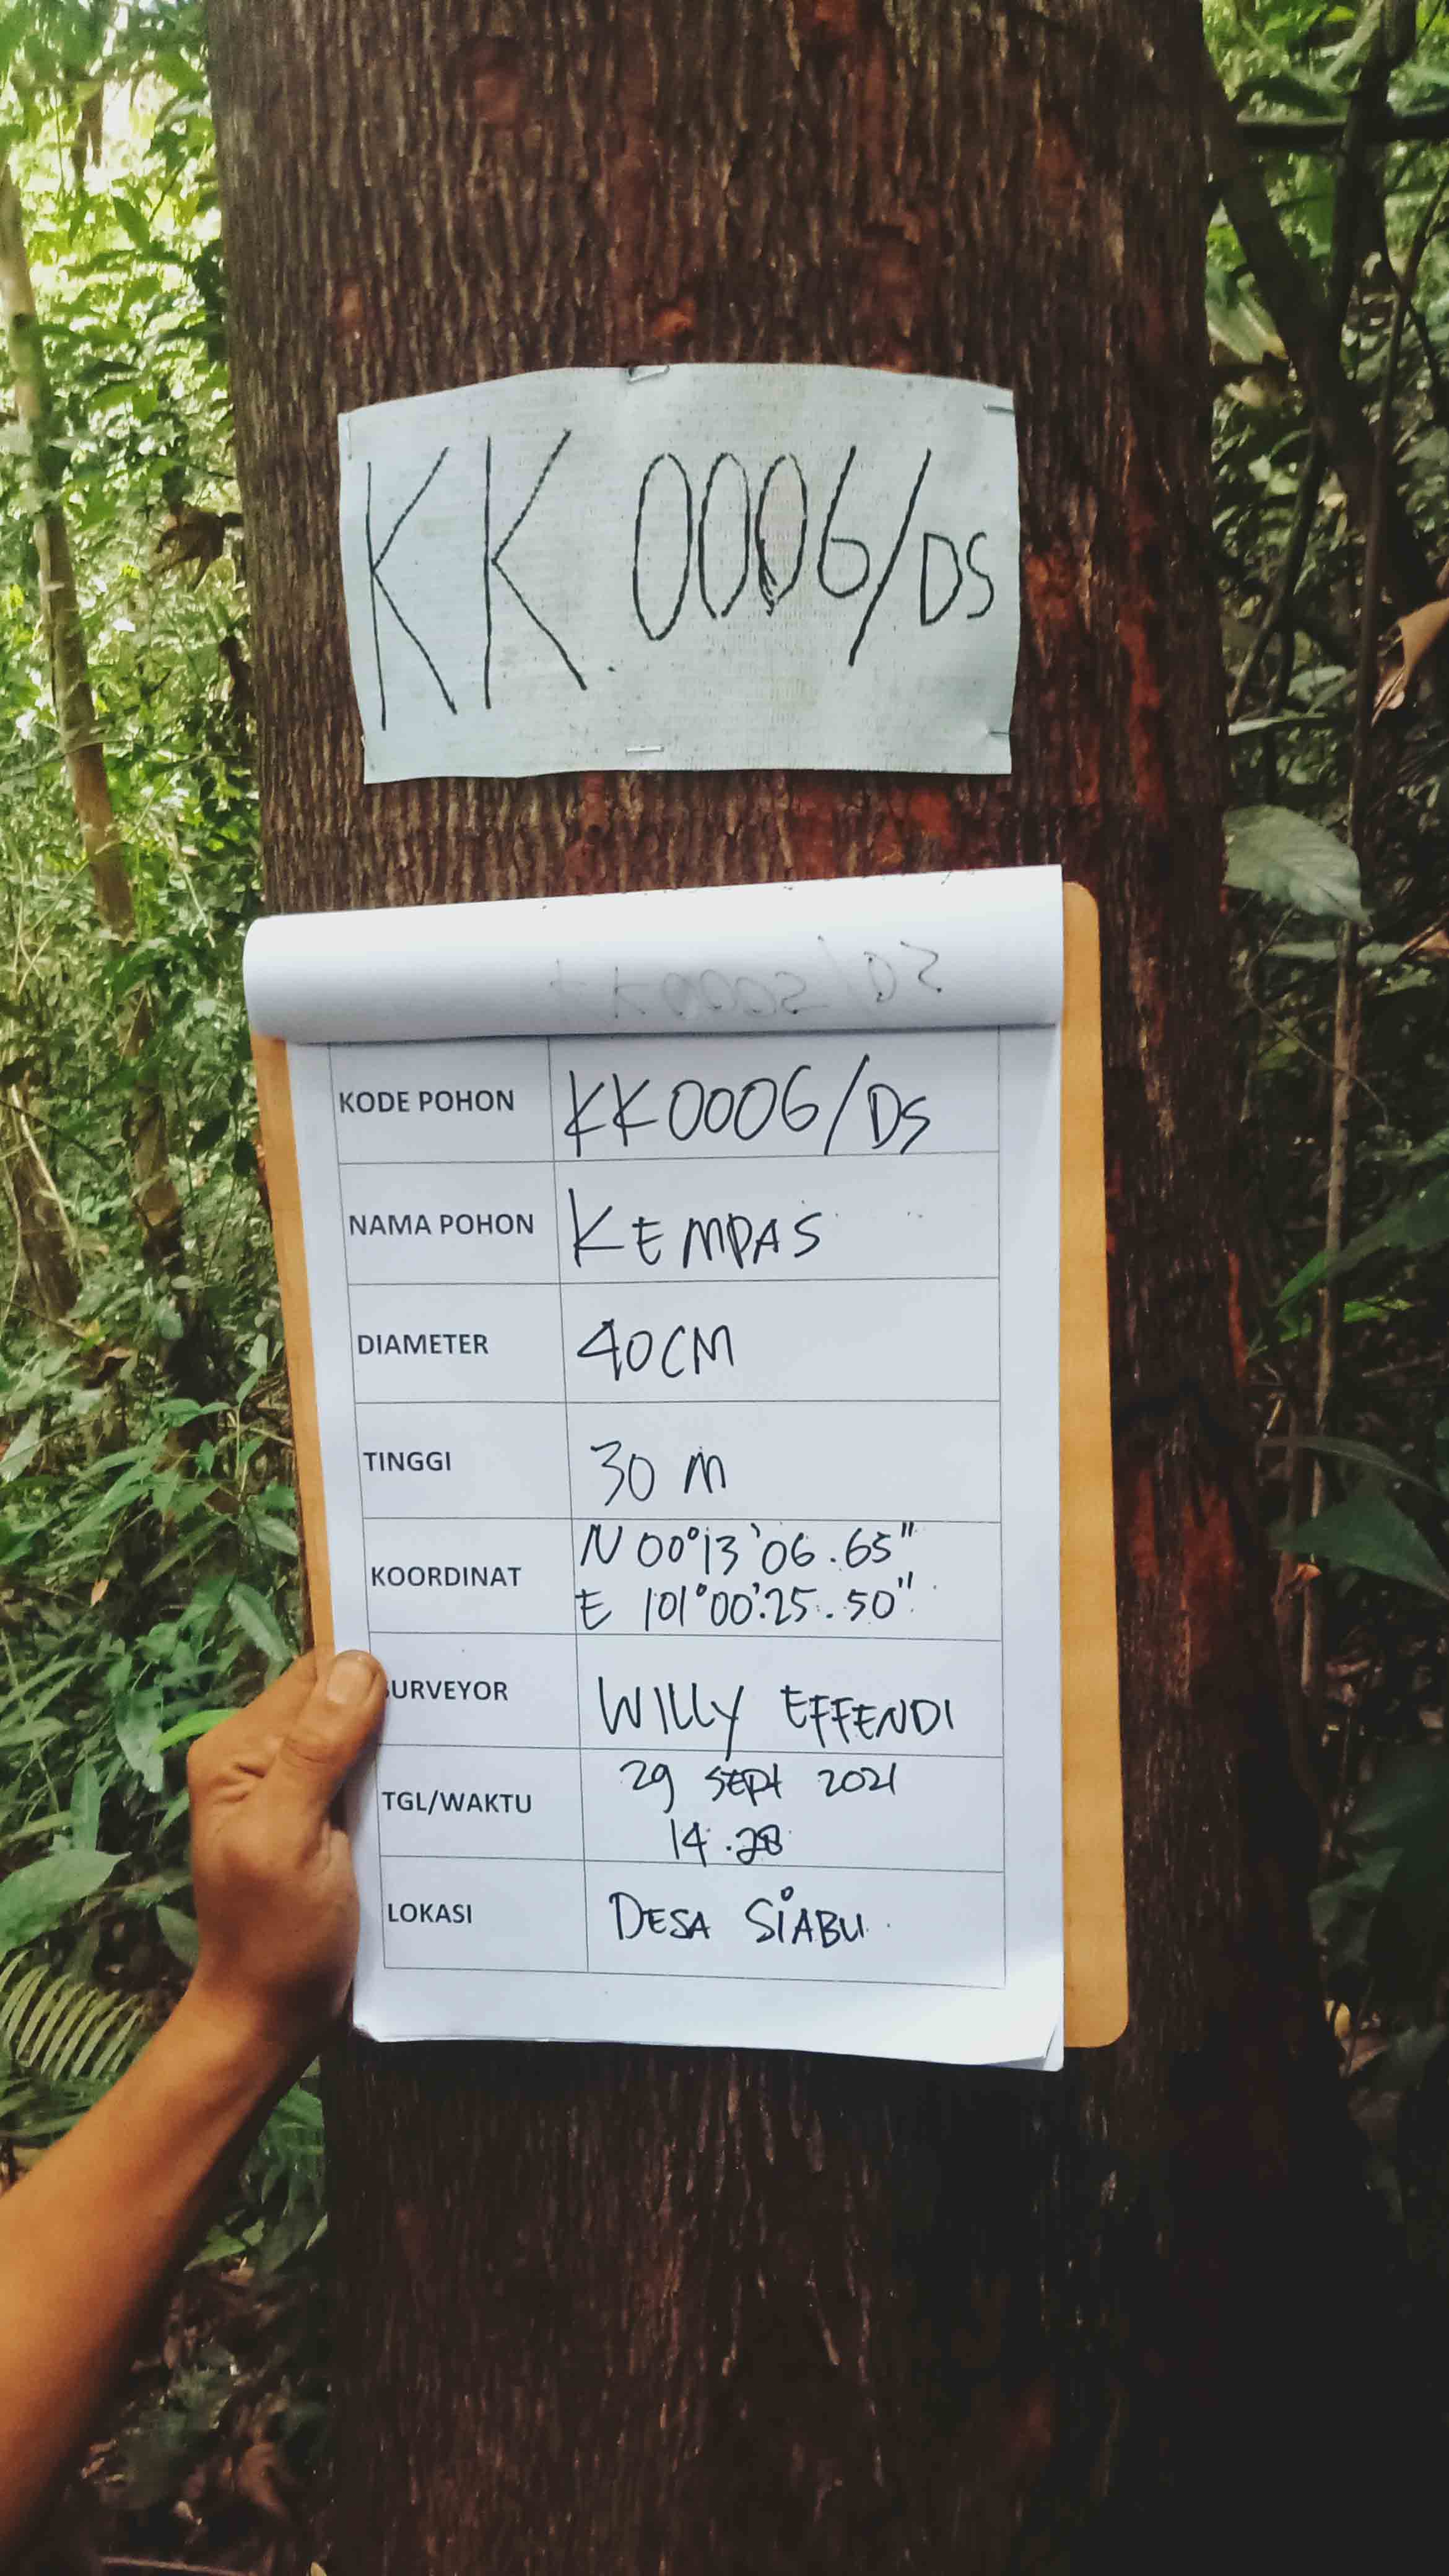 KK.0006/DS
KODE POHON KK0006/DS
NAMA POHON KEMPAS
DIAMETER 40CM
TINGGI 30 M
KOORDINAT N 00°13'06.65"
E 101°00'.25.50"
SURVEYOR WILLY EFFENDI
TGL/WAKTU 29 SEPT 2021
14.28
LOKASI DESA SIABU.